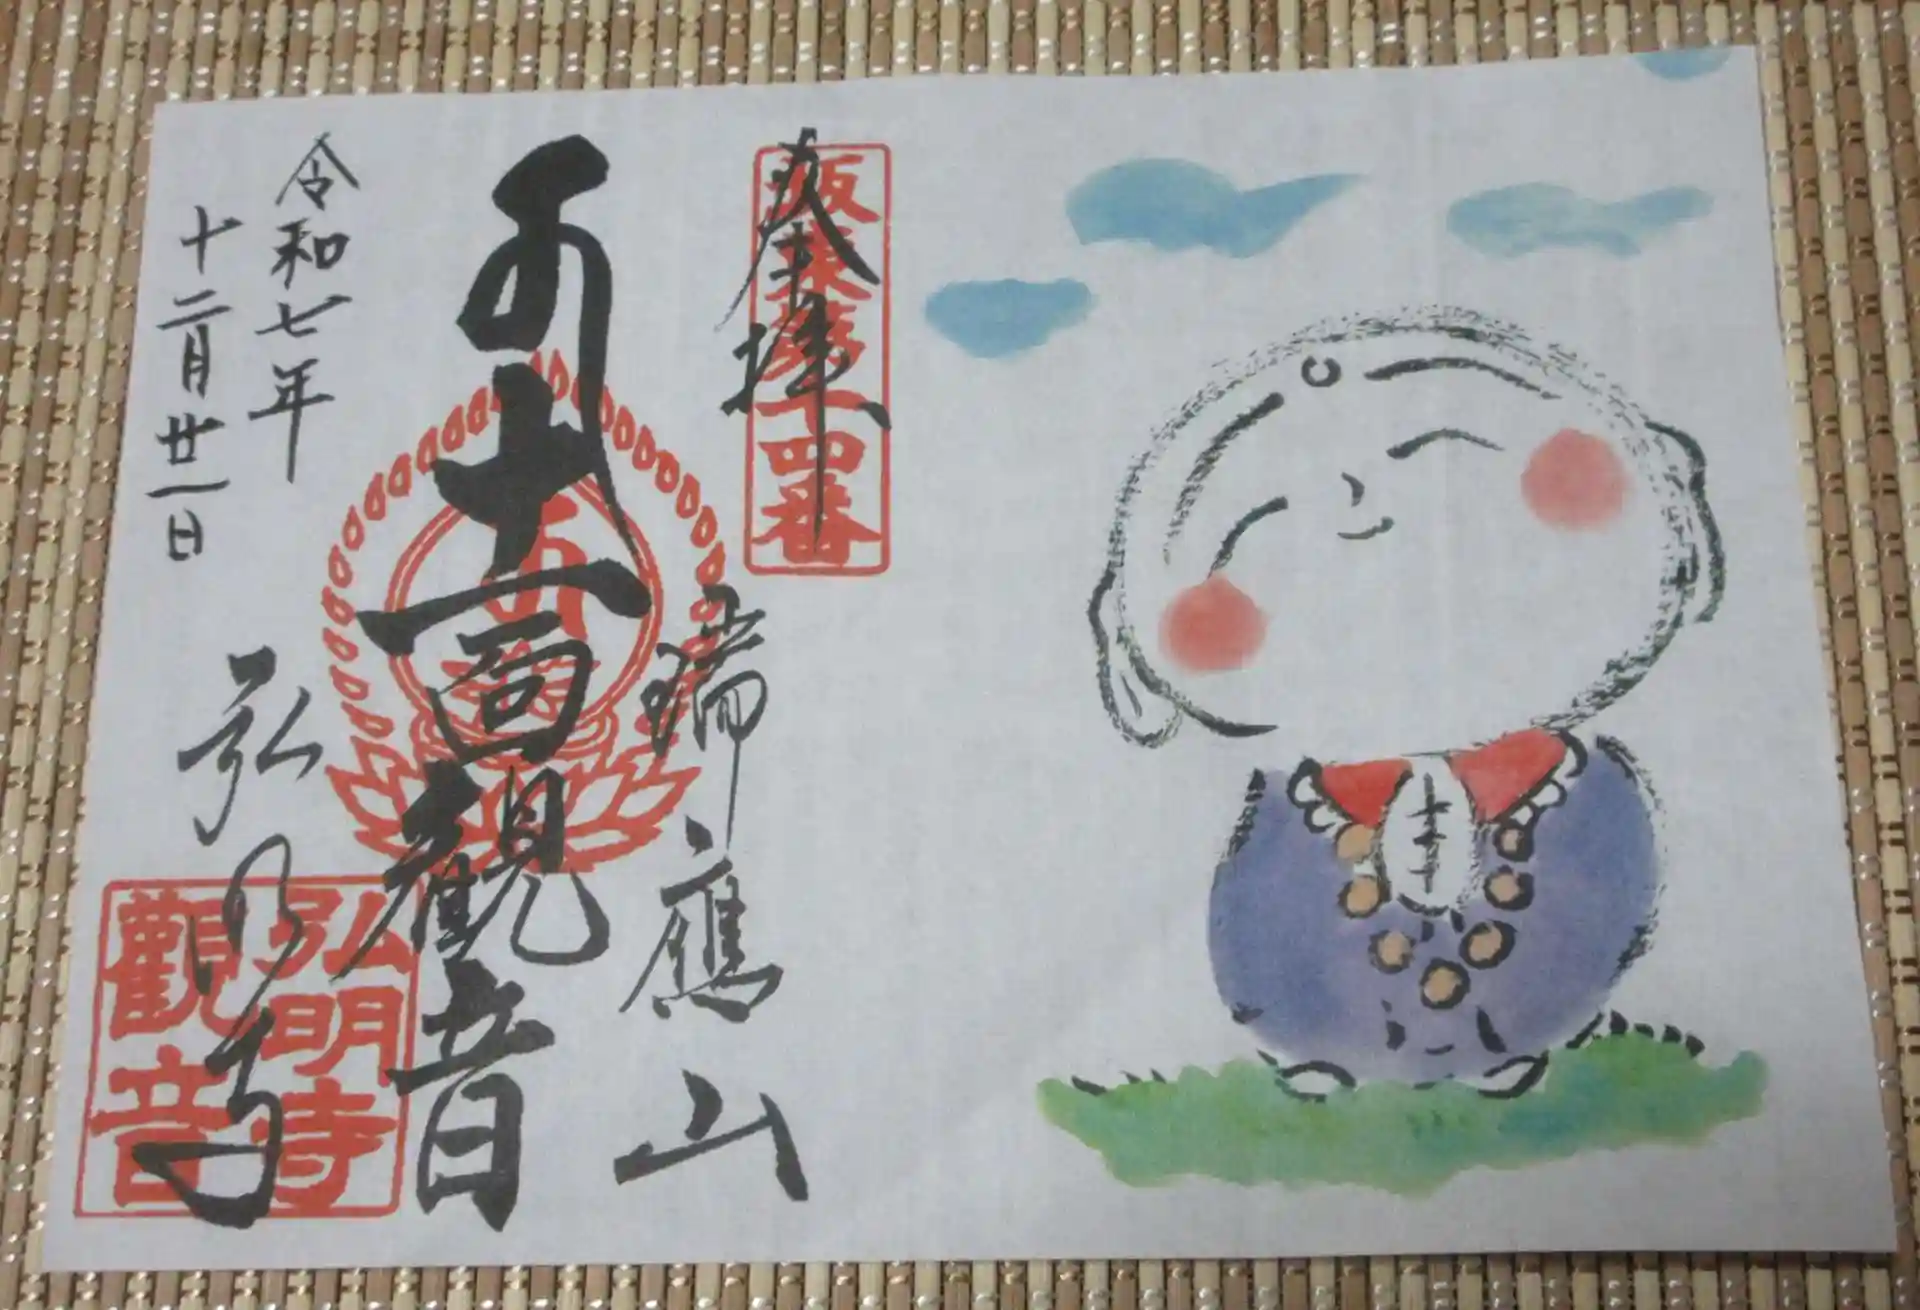 幸
奉拝
坂東第十四番
瑞應山
十一面観音
弘明寺
弘明寺
観音
令和七年
十二月廿一日